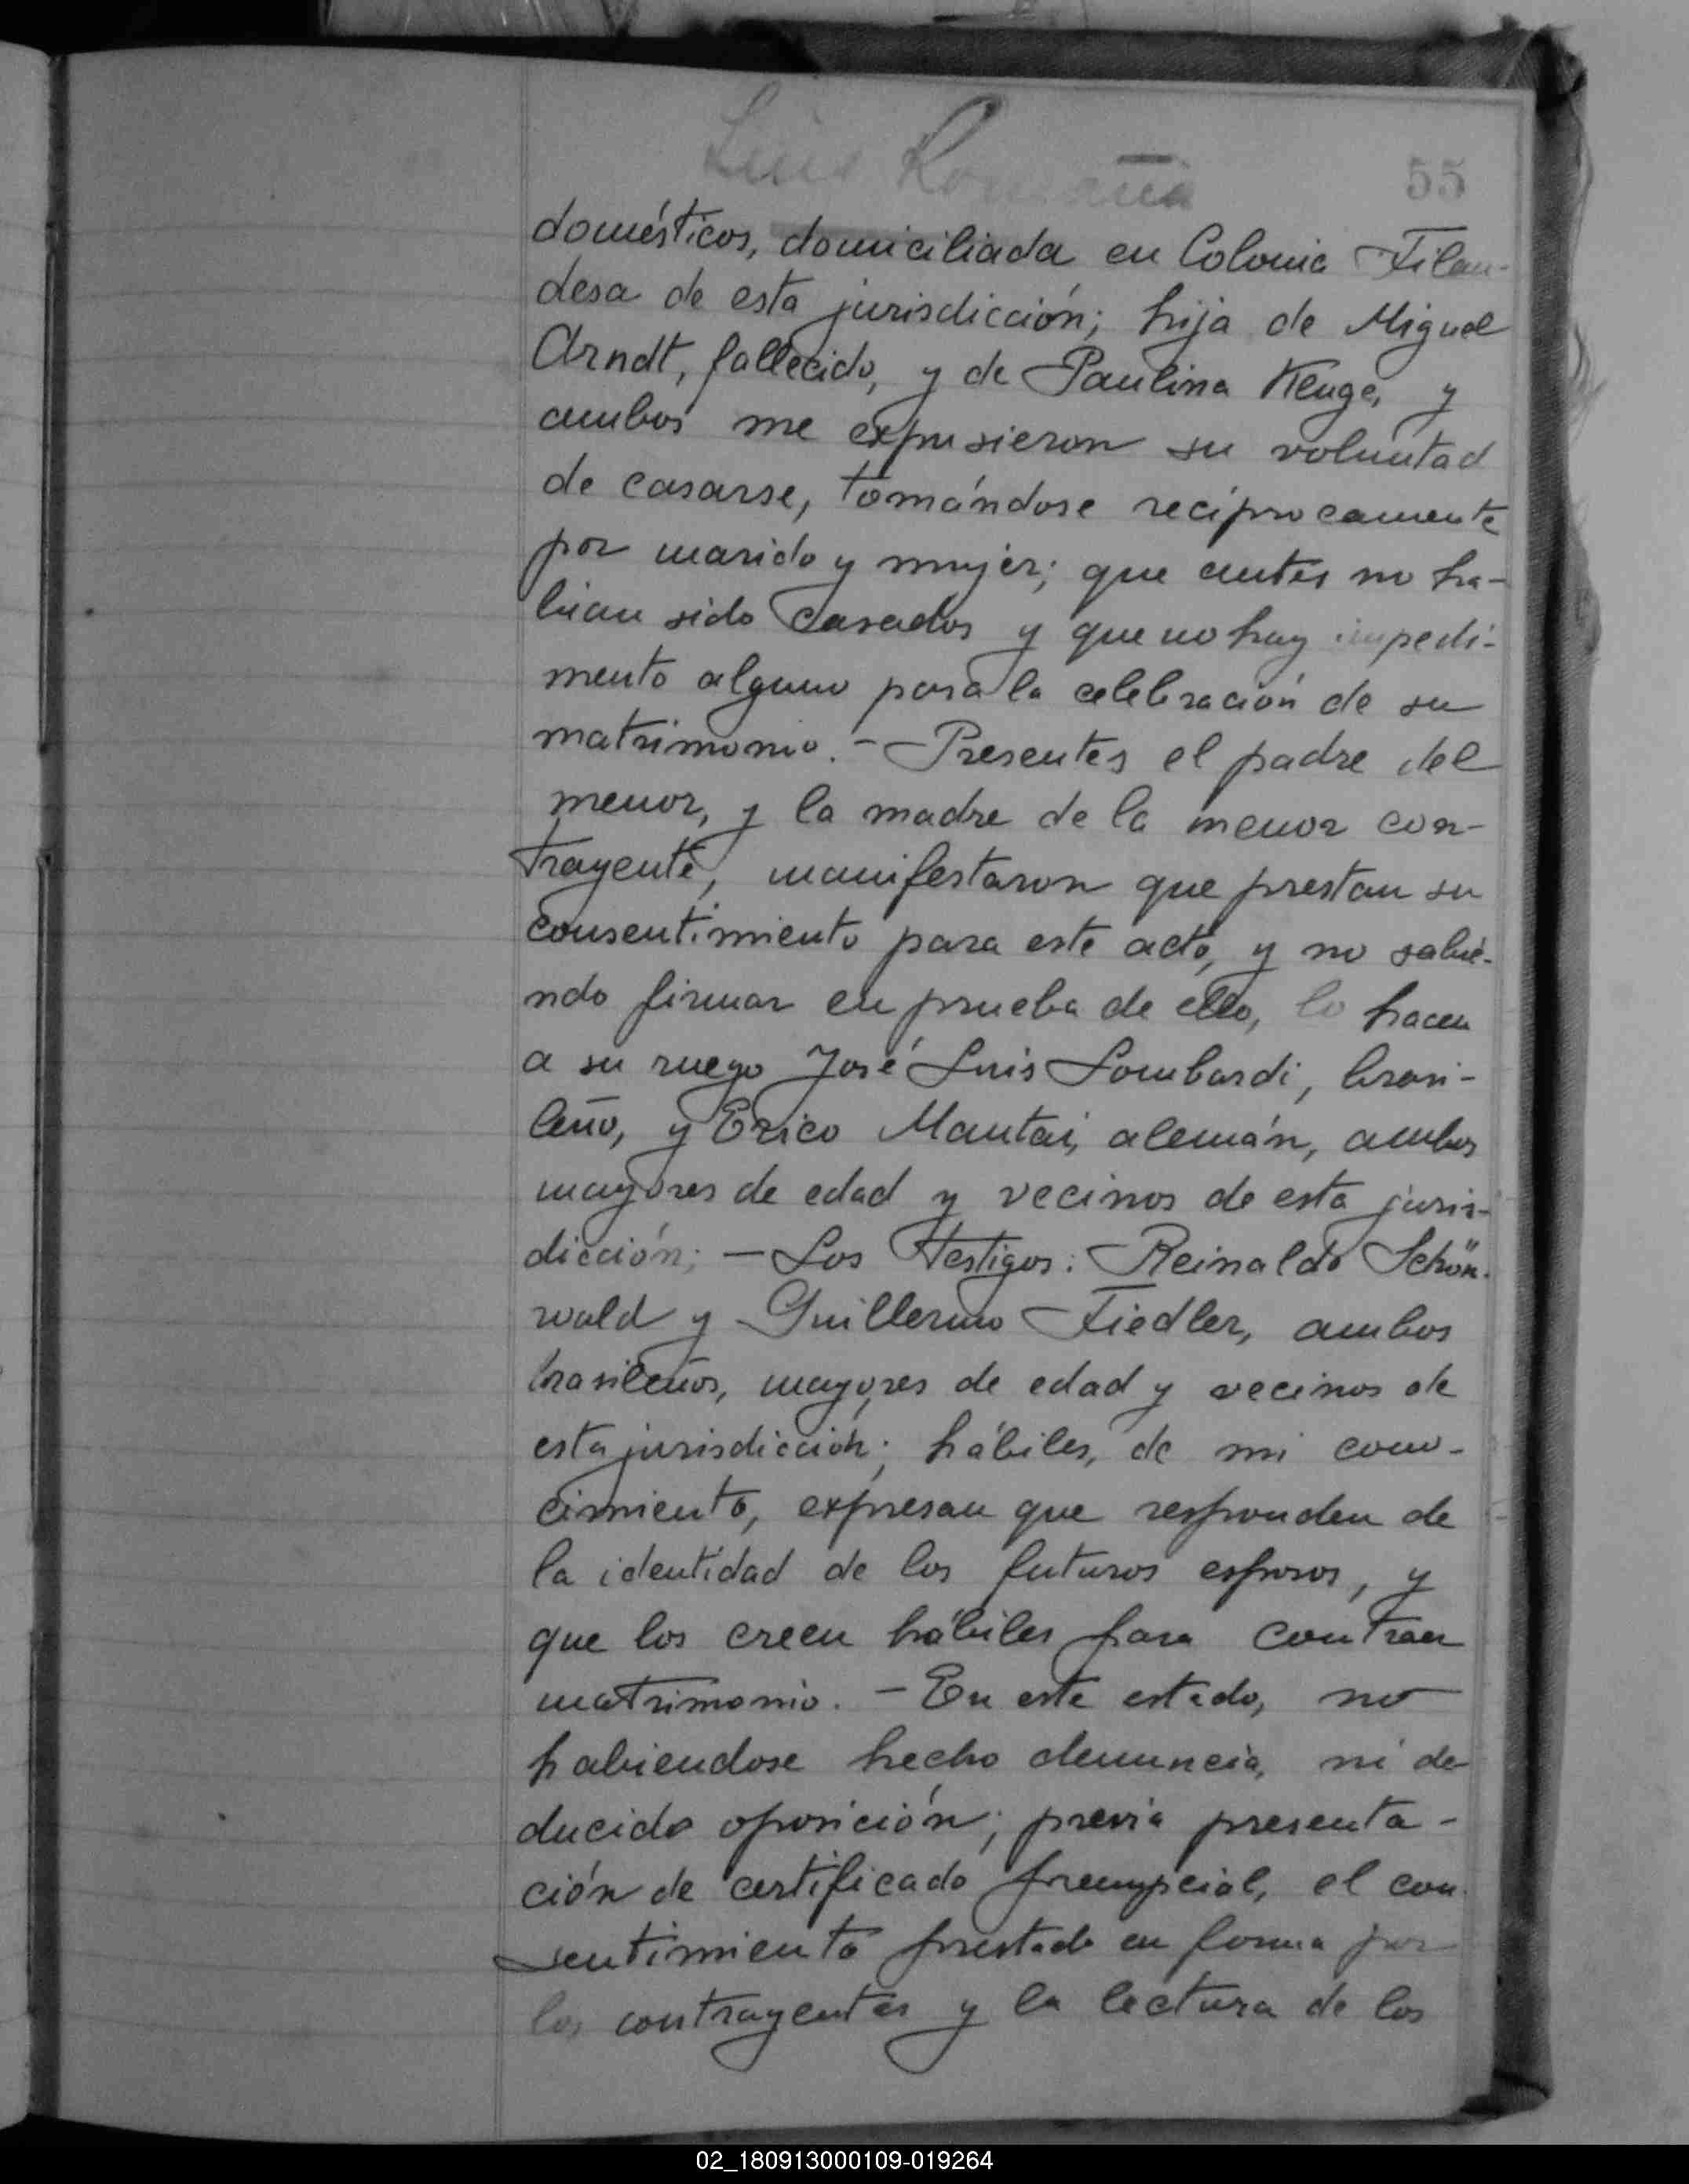 Luis Romaña
55
domésticos, domiciliada en Colonia Filan-
desa de esta jurisdicción; hija de Miguel
Arndt, fallecido, y de Paulina Kluge, y
ambos me expusieron su voluntad
de casarse, tomándose recíprocamente
por marido y mujer; que antes no ha-
bían sido casados y que no hay impedi-
mento alguno para la celebración de su
matrimonio. - Presentes el padre del
menor, y la madre de la menor con-
trayente, manifestaron que prestan su
consentimiento para este acto, y no sabié-
ndo firmar en prueba de ello, lo hacen
a su ruego José Luis Lombardi, brasi-
leño, y Erico Mantai, alemán, ambos
mayores de edad y vecinos de esta juris-
dicción; - Los Testigos: Reinaldo Schön-
wald y Guillermo Fiedler, ambos
brasileños, mayores de edad y vecinos de
esta jurisdicción; hábiles, de mi cono-
cimiento, expresan que responden de
la identidad de los futuros esposos, y
que los creen hábiles para contraer
matrimonio. - En este estado, no
habiendose hecho denuncia, ni de-
ducido oposición; previa presenta-
ción de certificado prenupcial, el con
sentimiento prestado en forma por
los contrayentes y la lectura de los
02_180913000109-019264